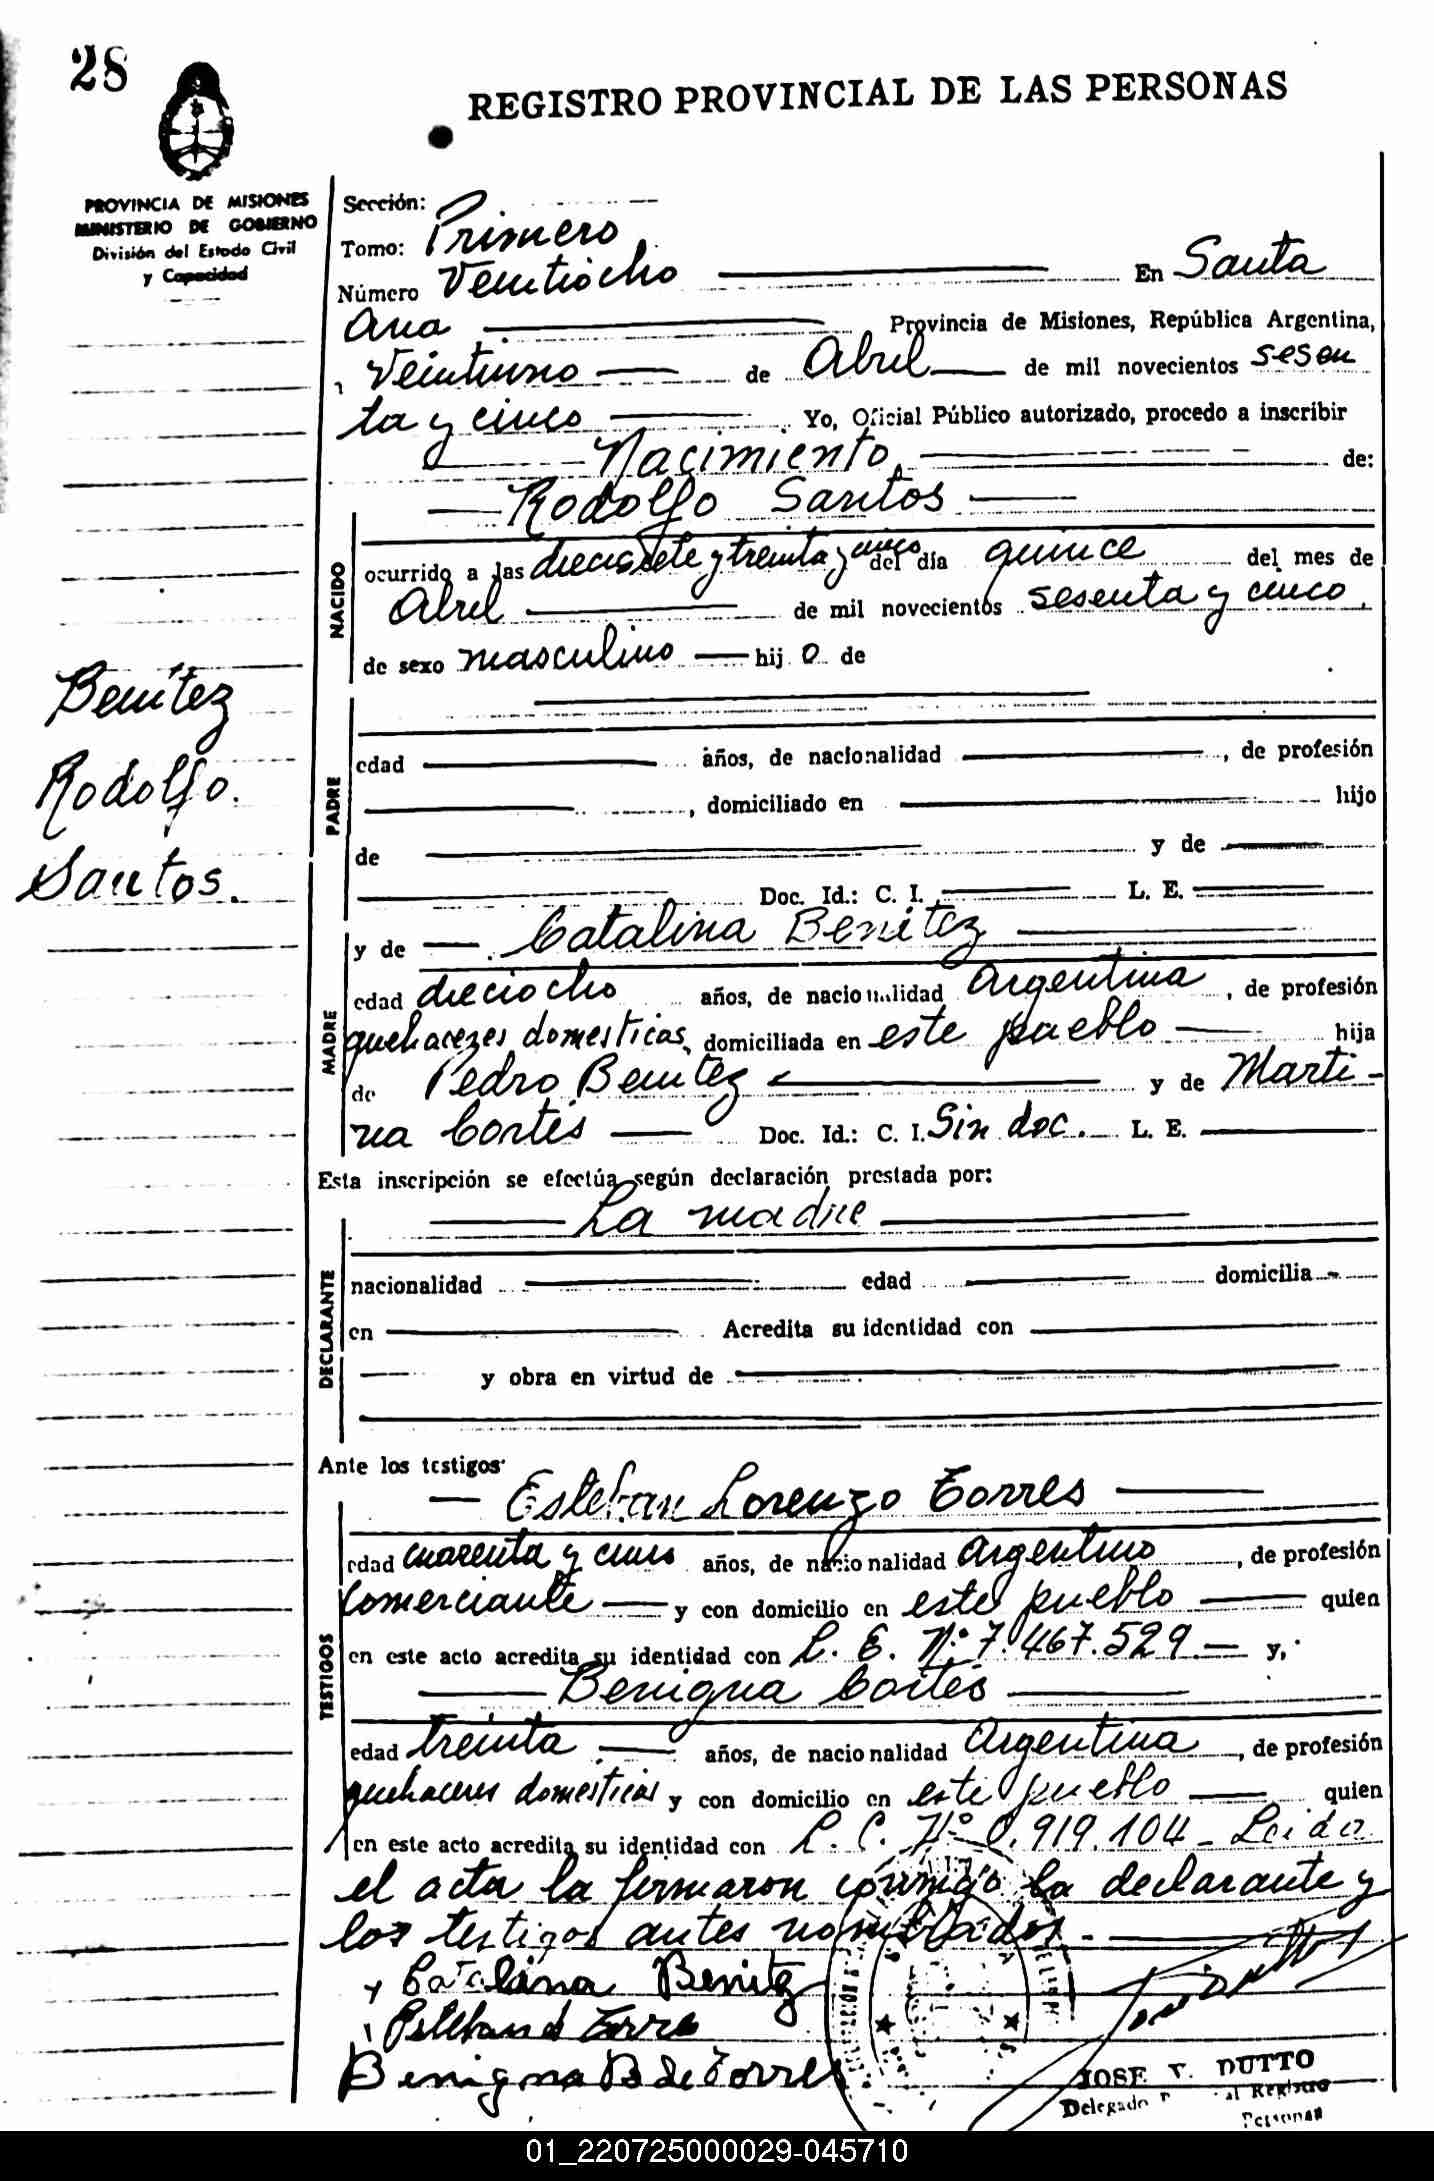 28
REGISTRO PROVINCIAL DE LAS PERSONAS
PROVINCIA DE MISIONES
MINISTERIO DE GOBIERNO
División del Estado Civil
y Capacidad
Sección:
Tomo: Primero
Número Veintiocho En Santa
Ana Provincia de Misiones, República Argentina,
Veintiuno de Abril de mil novecientos sesen
ta y cinco Yo, Oficial Público autorizado, procedo a inscribir
Nacimiento de:
Rodolfo Santos
NACIDO
ocurrido a las diecisiete y treinta y cinco del día quince del mes de
Abril de mil novecientos sesenta y cinco,
de sexo masculino hij o de
Benítez
Rodolfo.
Santos.
PADRE
edad años, de nacionalidad , de profesión
, domiciliado en hijo
de y de
Doc. Id.: C. I. L. E.
MADRE
y de Catalina Benítez
edad dieciocho años, de nacionalidad Argentina, de profesión
quehaceres domesticas, domiciliada en este pueblo hija
de Pedro Benítez y de Marti-
na Cortés Doc. Id.: C. I. Sin doc. L. E.
Esta inscripción se efectúa según declaración prestada por:
La madre
DECLARANTE
nacionalidad edad domicilia
en Acredita su identidad con
y obra en virtud de
Ante los testigos
Esteban Lorenzo Torres
TESTIGOS
edad cuarenta y cinco años, de nacionalidad Argentino, de profesión
Comerciante y con domicilio en este pueblo quien
en este acto acredita su identidad con L. E. Nº 7.467.529. y,
Benigna Cortés
edad treinta años, de nacionalidad Argentina, de profesión
quehaceres domésticos y con domicilio en este pueblo quien
en este acto acredita su identidad con L. C. Nº 0.919.104 - Leida
el acta la firmaron conmigo la declarante y
los testigos antes nombrados.
Catalina Benitz
Torre
Benigna B de Torres
JOSE V. DUTTO
Delegado Registro
Personas
01_220725000029-045710